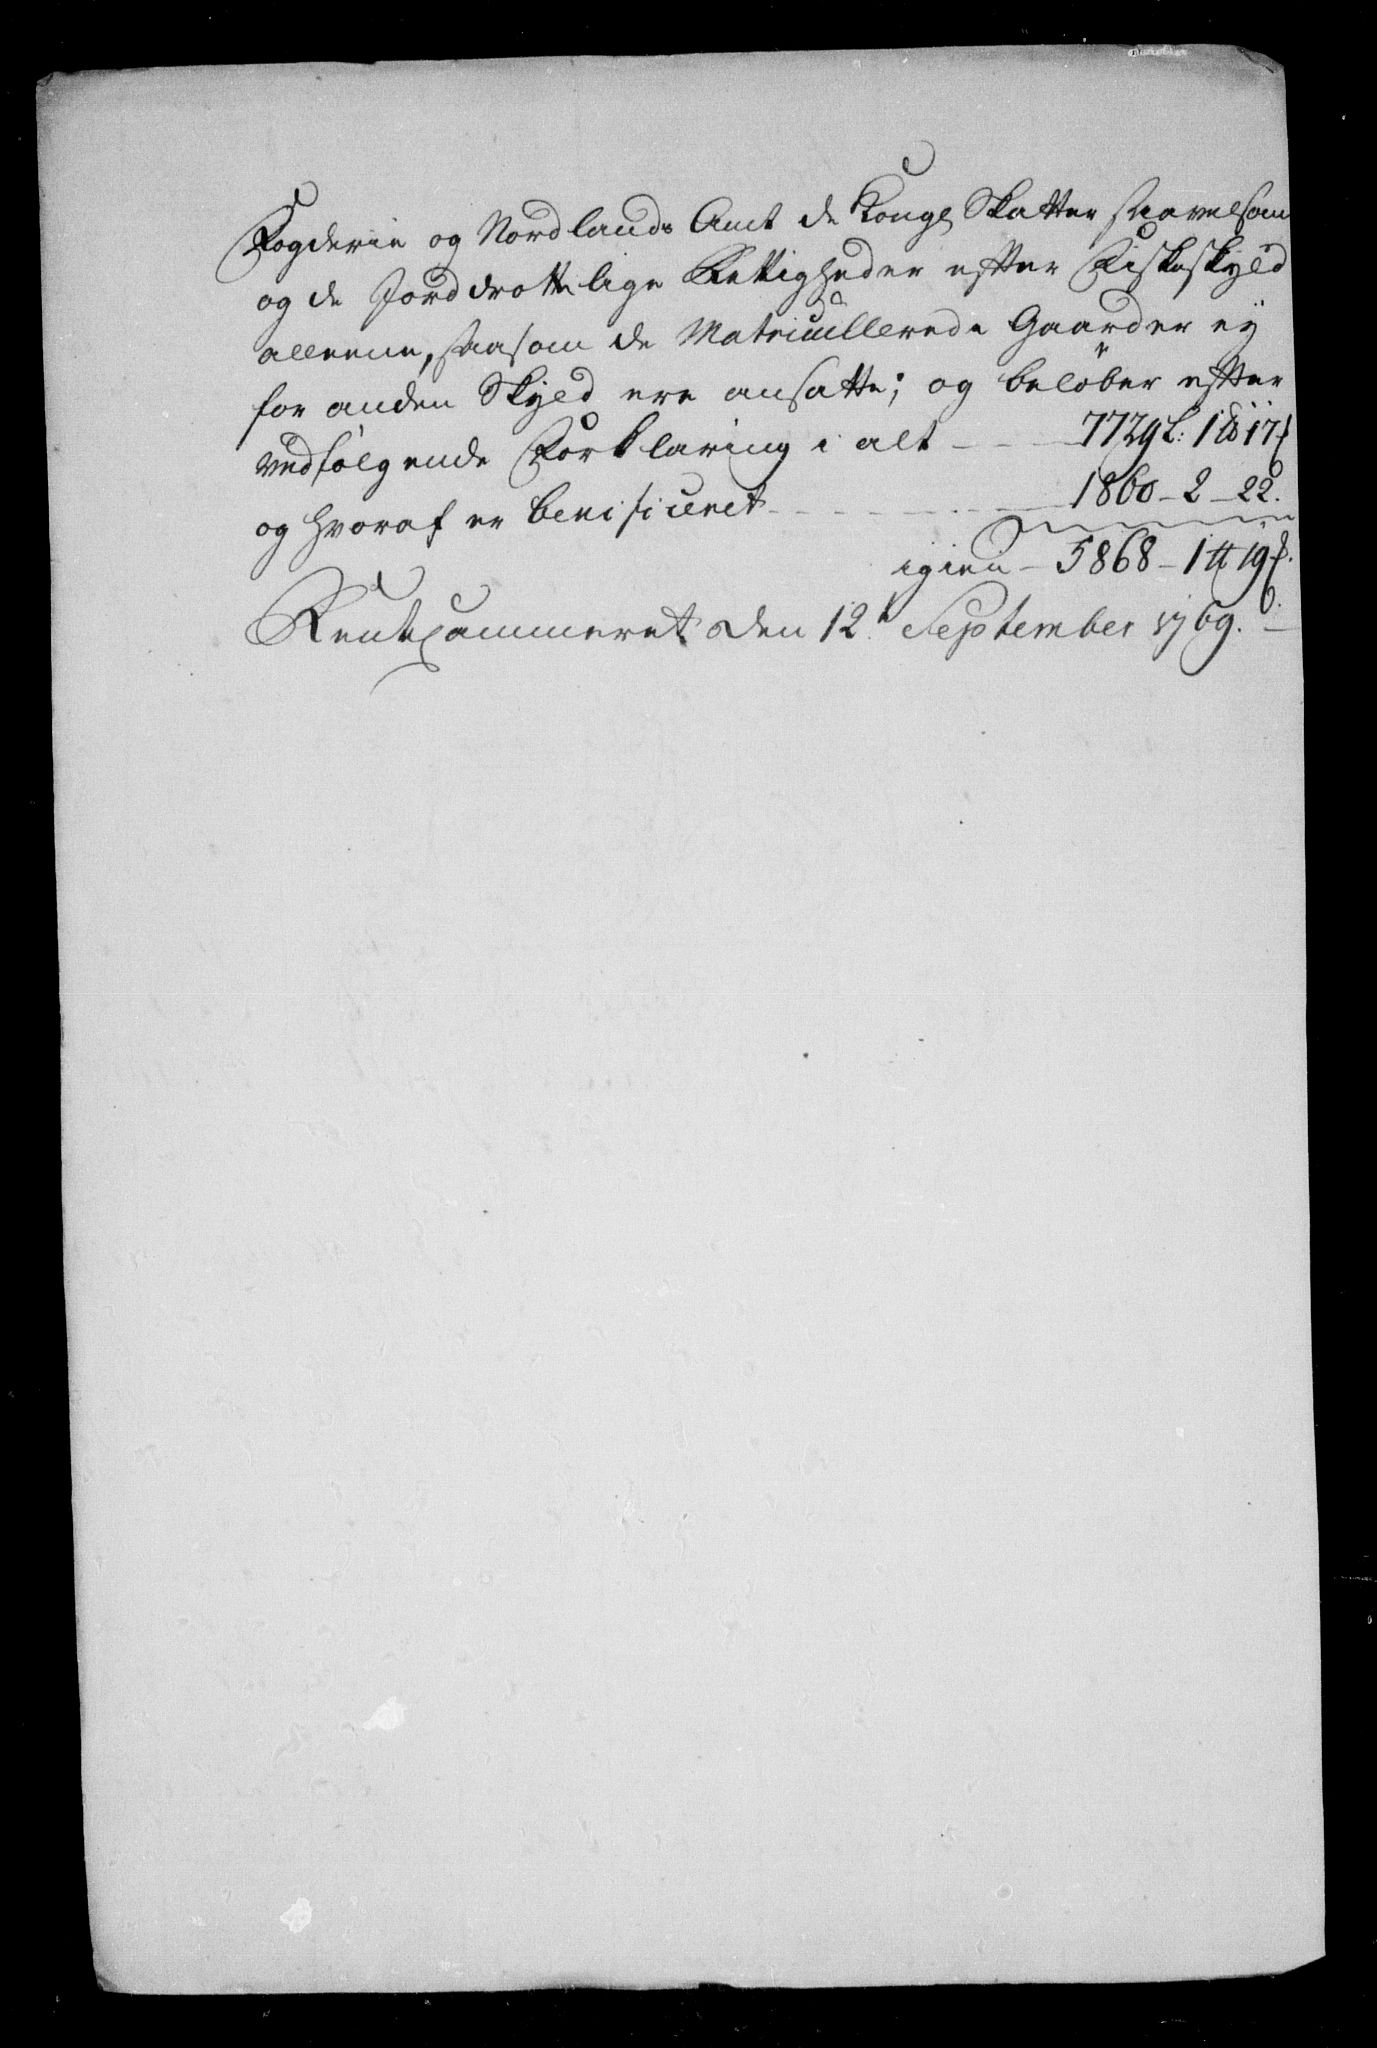 Fogderie og Nordlands Amt de Kongel Skatter saavelsom
og de Jorddrottelige Rettigheder efter Fiskeskyld
alleene, saasom de Matriculerede Gaarder ey
for anden Skyld ere ansatte; og beløber efter
vedfølgende Forklaring i alt — 7729 17
og hvoraf er beneficeret — 1860 - 2 - 22.
igien — 5868 - 1 19
Rentecammeret den 12te September 1769.